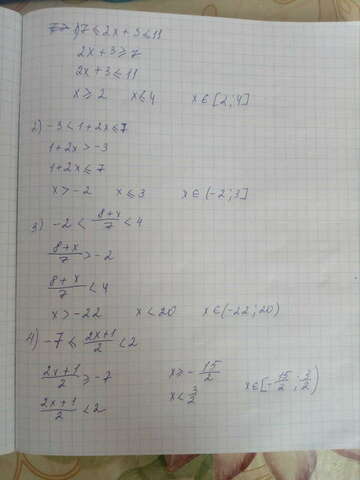 1) 7 ≤ 2x + 3 ≤ 11
2x + 3 ≥ 7
2x + 3 ≤ 11
x ≥ 2 x ≤ 4 x ∈ [2; 4]
2) -3 < 1 + 2x ≤ 7
1 + 2x > -3
1 + 2x ≤ 7
x > -2 x ≤ 3 x ∈ (-2; 3]
3) -2 < (8+x)/7 < 4
(8+x)/7 > -2
(8+x)/7 < 4
x > -22 x < 20 x ∈ (-22; 20)
4) -7 ≤ (2x+1)/2 < 2
(2x+1)/2 ≥ -7 x ≥ -15/2
(2x+1)/2 < 2 x < 3/2 x ∈ [-15/2; 3/2)